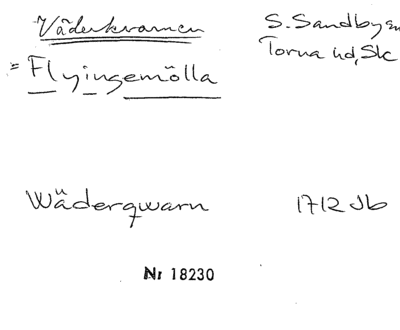 Väderkvarnen
S. Sandby sn
= Flyingemölla
Torna hd, Sk
Wäderqwarn 1712 Jb
Nr 18230